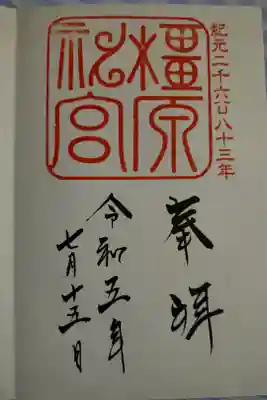 紀元二千六百八十三年
橿原
神宮
奉拝
令和五年
七月十五日